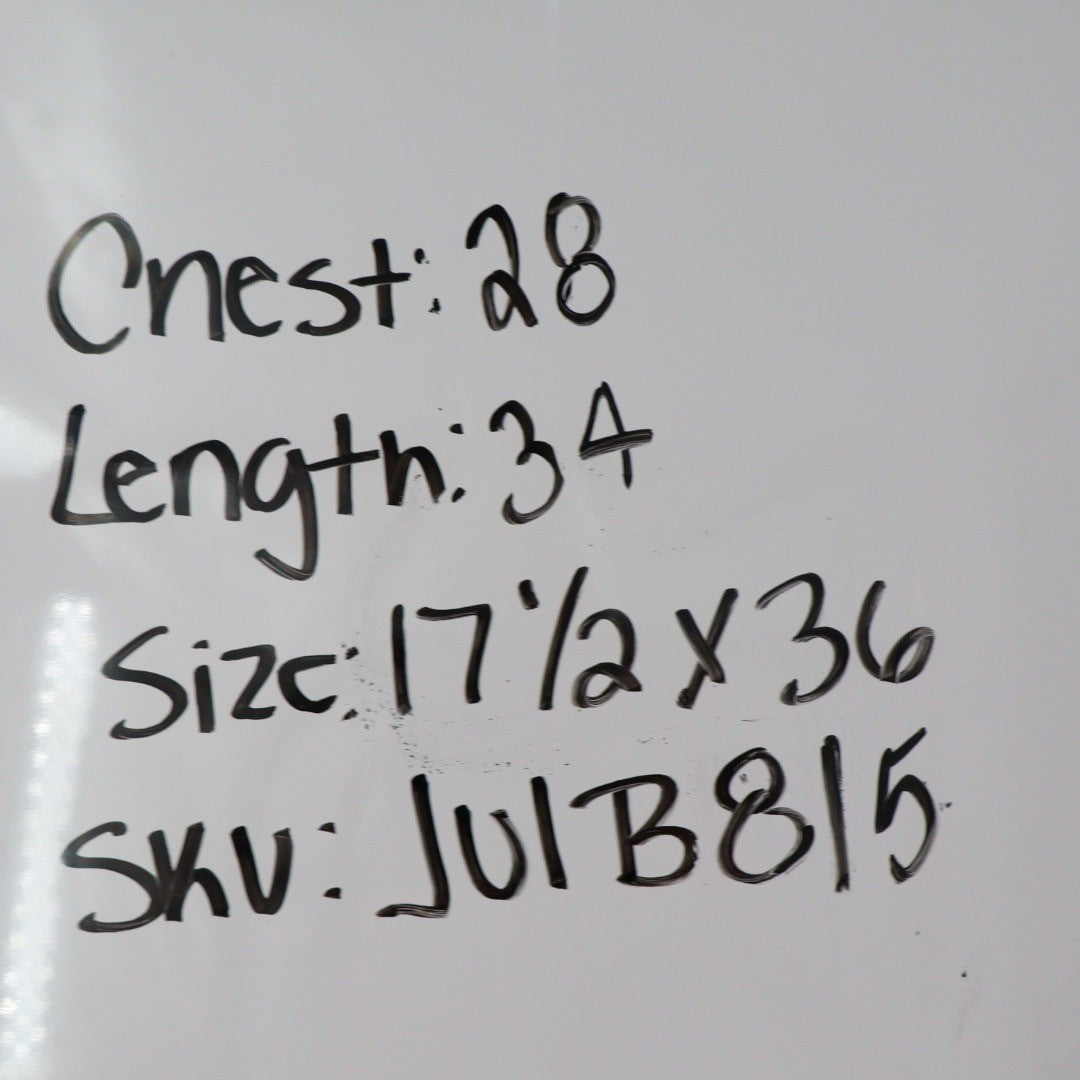 Chest: 28
Length: 34
Size: 17 1/2 x 36
SKU: JulB815